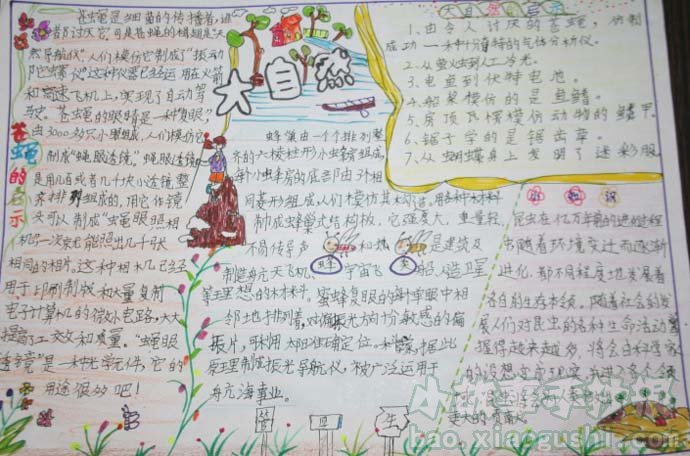 苍蝇的启示
苍蝇是细菌的传播者,谁
都讨厌它。可是苍蝇的楫翅是"天
然导航仪",人们模仿它制成了"振动
陀螺仪"。这种仪器已经运用在火箭
和高速飞机上,实现了自动驾
驶。苍蝇的眼睛是一种"复眼",
由3000多只小眼组成,人们模仿它
制成了"蝇眼透镜"。"蝇眼透镜"
是用几百或者几千块小透镜整
齐排列组成的,用它作镜
头可以制成"蝇眼照相
机",一次就能照出几千张
相同的相片。这种相机已经
用于印刷制版和大量复制
电子计算机的微小电路,大大
提高了工效和质量。"蝇眼
透镜"是一种光学元件,它的
用途很多呢!
大自然
蜂巢由一个个排列整
齐的六棱柱形小蜂房组成,
每个小蜂房的底部由3个相
同菱形组成,人们模仿其构造,用各种材料
制成蜂巢式结构板,它强度大,重量轻,
不易传导声
和热
是建筑及
制造航天飞机、宇宙飞
船、人造卫星
等理想的材料。蜜蜂复眼的每个单眼中相
邻地排列着对偏振光方向十分敏感的偏
振片,可利用太阳准确定位。科学家据此
原理制成偏振光导航仪,被广泛运用于
航海事业。
蜂
类
管
见
大自然的启示
1、由令人讨厌的苍蝇,仿制
成功一种十分奇特的气体分析仪。
2、从萤火虫到人工冷光。
3、电鱼到伏特电池。
4、船桨模仿的是鱼鳍。
5、房顶瓦楞模仿动物的鳞甲。
6、锯子学的是锯齿草。
7、从蝴蝶身上发明了迷彩服
昆虫在亿万年的进化过程
中随着环境变迁而逐渐
进化,都不同程度地发展着
各自的生存本领。随着社会的发
展人们对昆虫的各种生命活动掌
握得越来越多,
小报手抄报
bao.xiaogushi.com